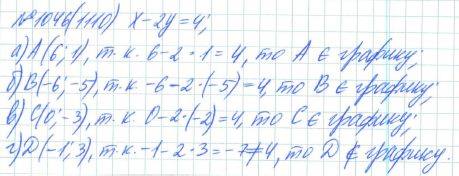 №1046(1110) x-2y=4;
а) A(6; 1), т.к. 6-2·1=4, то A ∈ графику;
б) B(-6; -5), т.к. -6-2·(-5)=4, то B ∈ графику;
в) C(0; -3), т.к. 0-2·(-2)=4, то C ∈ графику;
г) D(-1; 3), т.к. -1-2·3=-7≠4, то D ∉ графику.